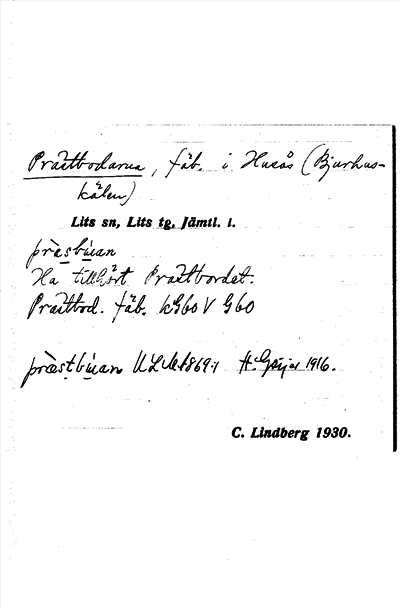 Prästbodarna, fäb. i Husås (Bjurhus-
kälen)
Lits sn, Lits tg, Jämtl. l.
præ̀sbùan
Ha tillhört Prästbordet.
Prästbod. fäb. kG60V G60
præ̀stbùan ULMA 869:1 H. Geijer 1916.
C. Lindberg 1930.